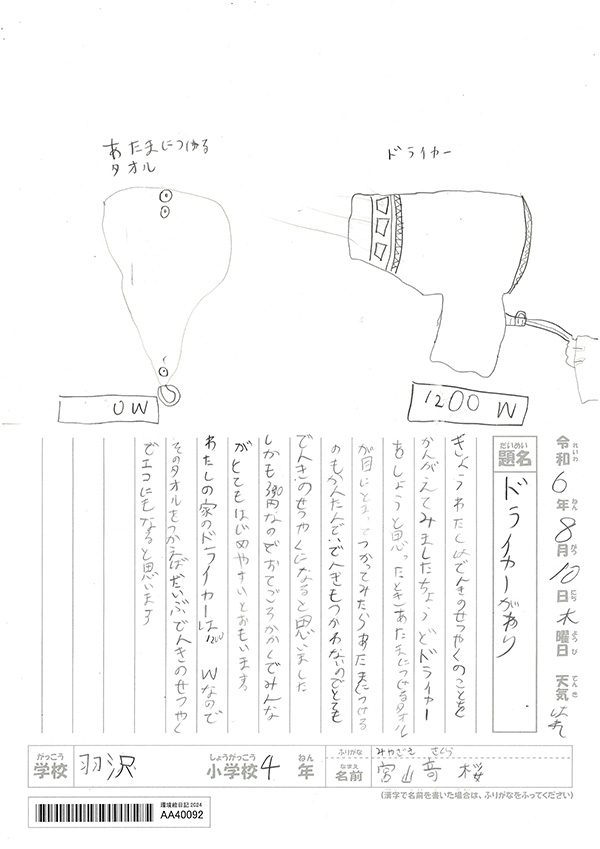 あたまにつける
タオル
ドライカー
0W
1200 W
令和6年8月10日木曜日 天気 晴れ
れいわ ねん がつ にち ようび てんき
だいめい
題名 ドライカーがわり
きょうわたしはでんきのせつやくのことを
かんがえてみましたちょうどドライカー
をしようと思ったときあたまにつけるタオル
が目にとまってつかってみたらあたまにつける
のもかんたんで、でんきもつかわないのでとても
でんきのせつやくになると思いました
しかも390円なのでおてごろかかくでみんな
がとてもはじめやすいとおもいます。
わたしの家のドライカーは1200Wなので
そのタオルをつかえばだいぶでんきのせつやく
でエコにもなると思います
がっこう
学校 羽沢
しょうがっこう ねん
小学校4年
ふりがな みやざき さくら
なまえ
名前 宮山奇 桜
(漢字で名前を書いた場合は、ふりがなをふってください)
環境絵日記2024
AA40092